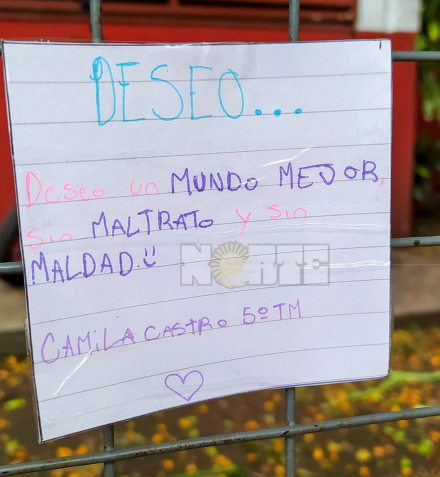 DESEO...
Deseo un MUNDO MEJOR,
sin MALTRATO y sin
MALDAD.
NORTE
CAMILA CASTRO 5º TM